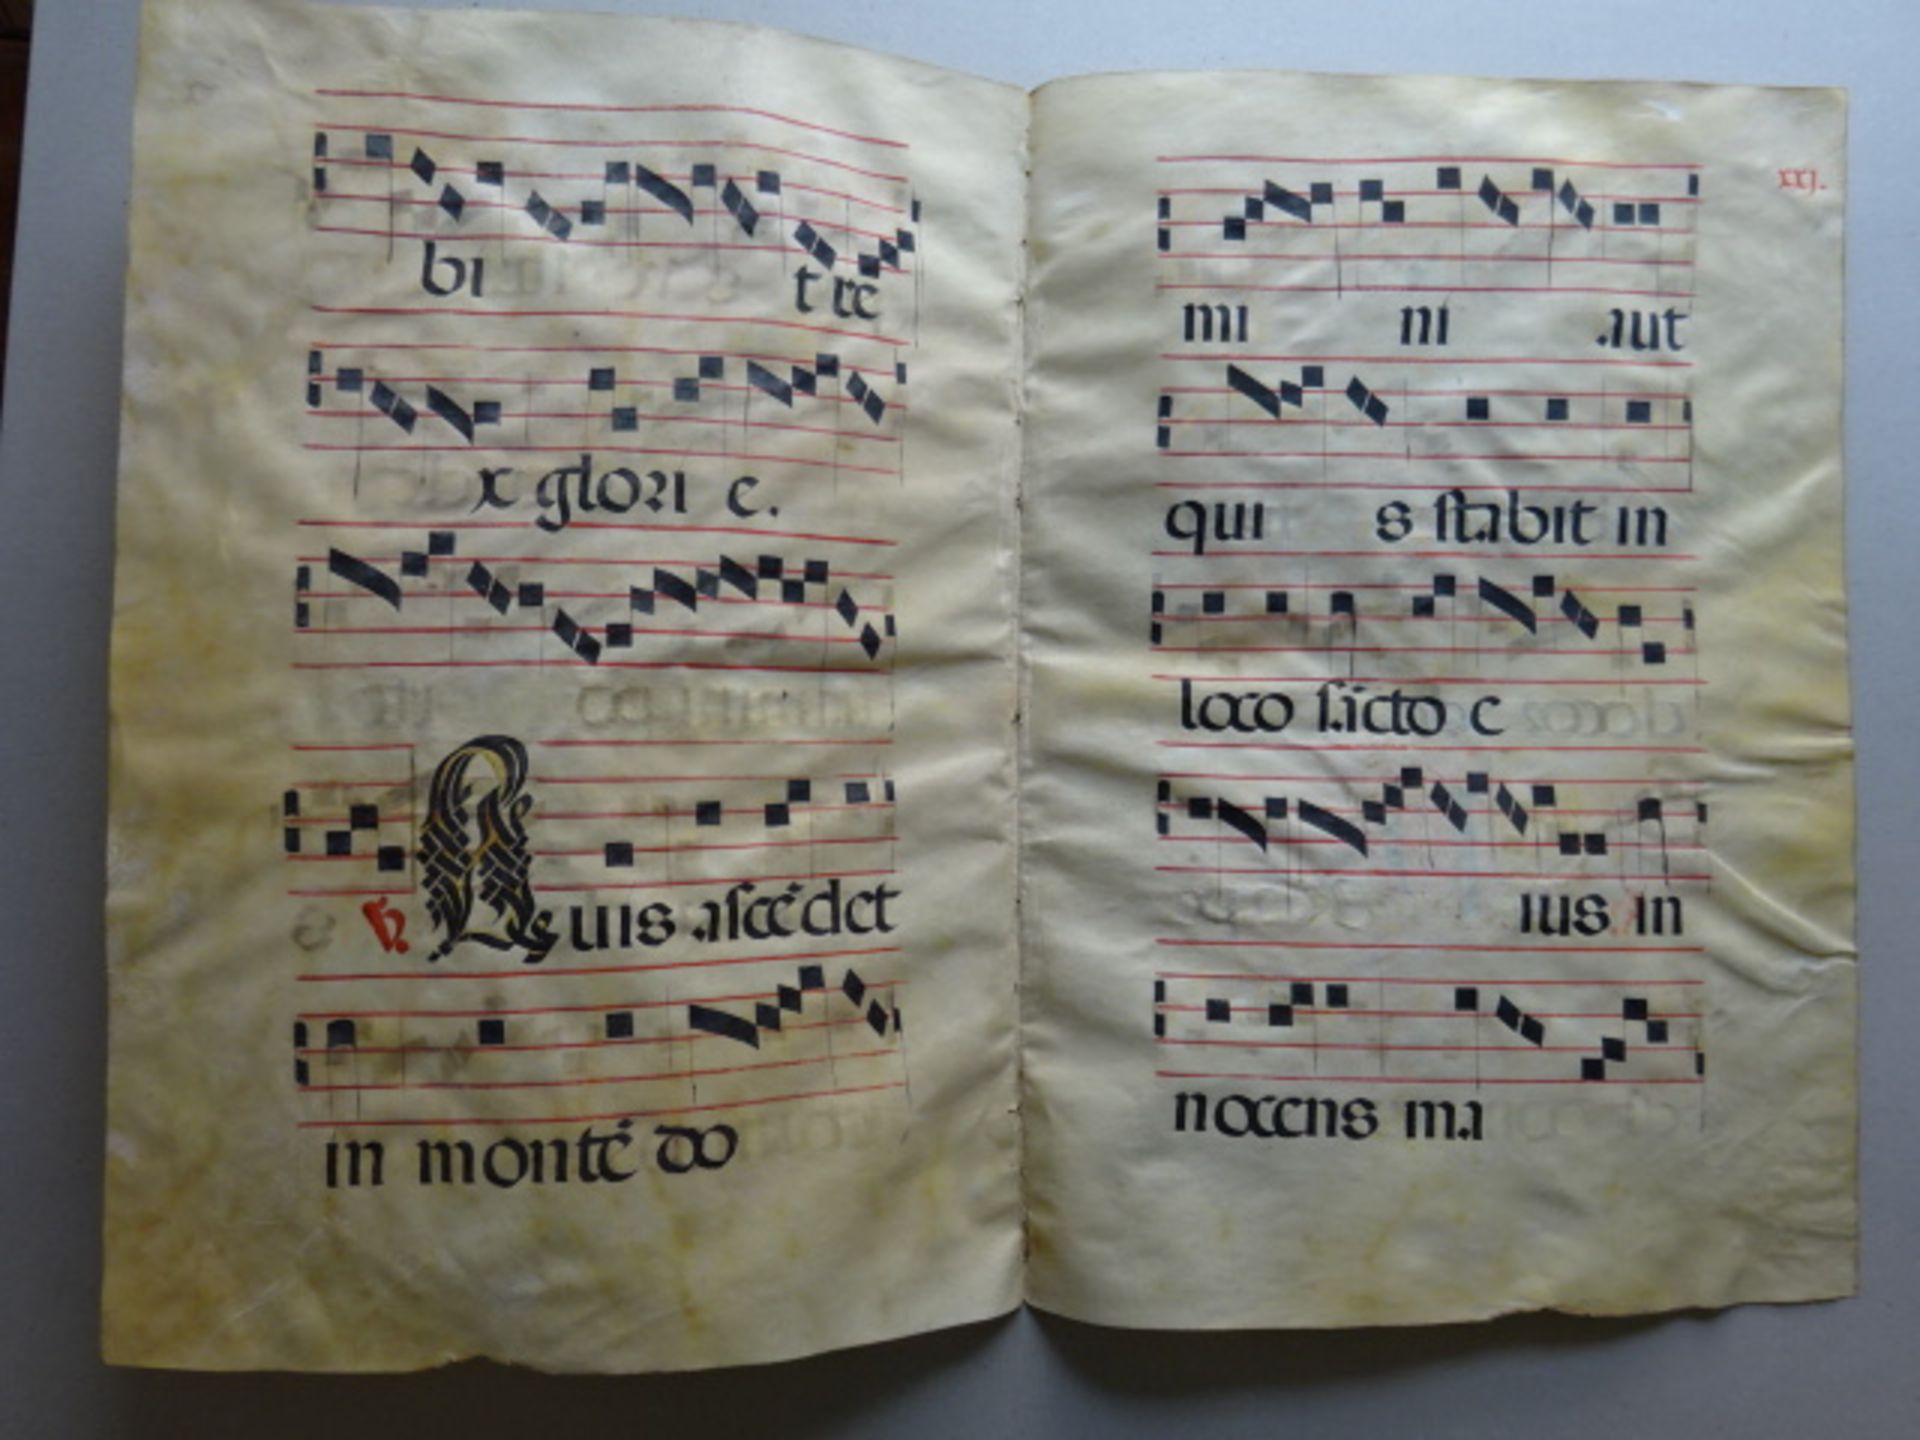 bi t re
x glori e.
℣. Quis ascēdet
in montē do
xxj.
mi ni aut
qui s stabit in
loco sācto e
ius in
nocens ma